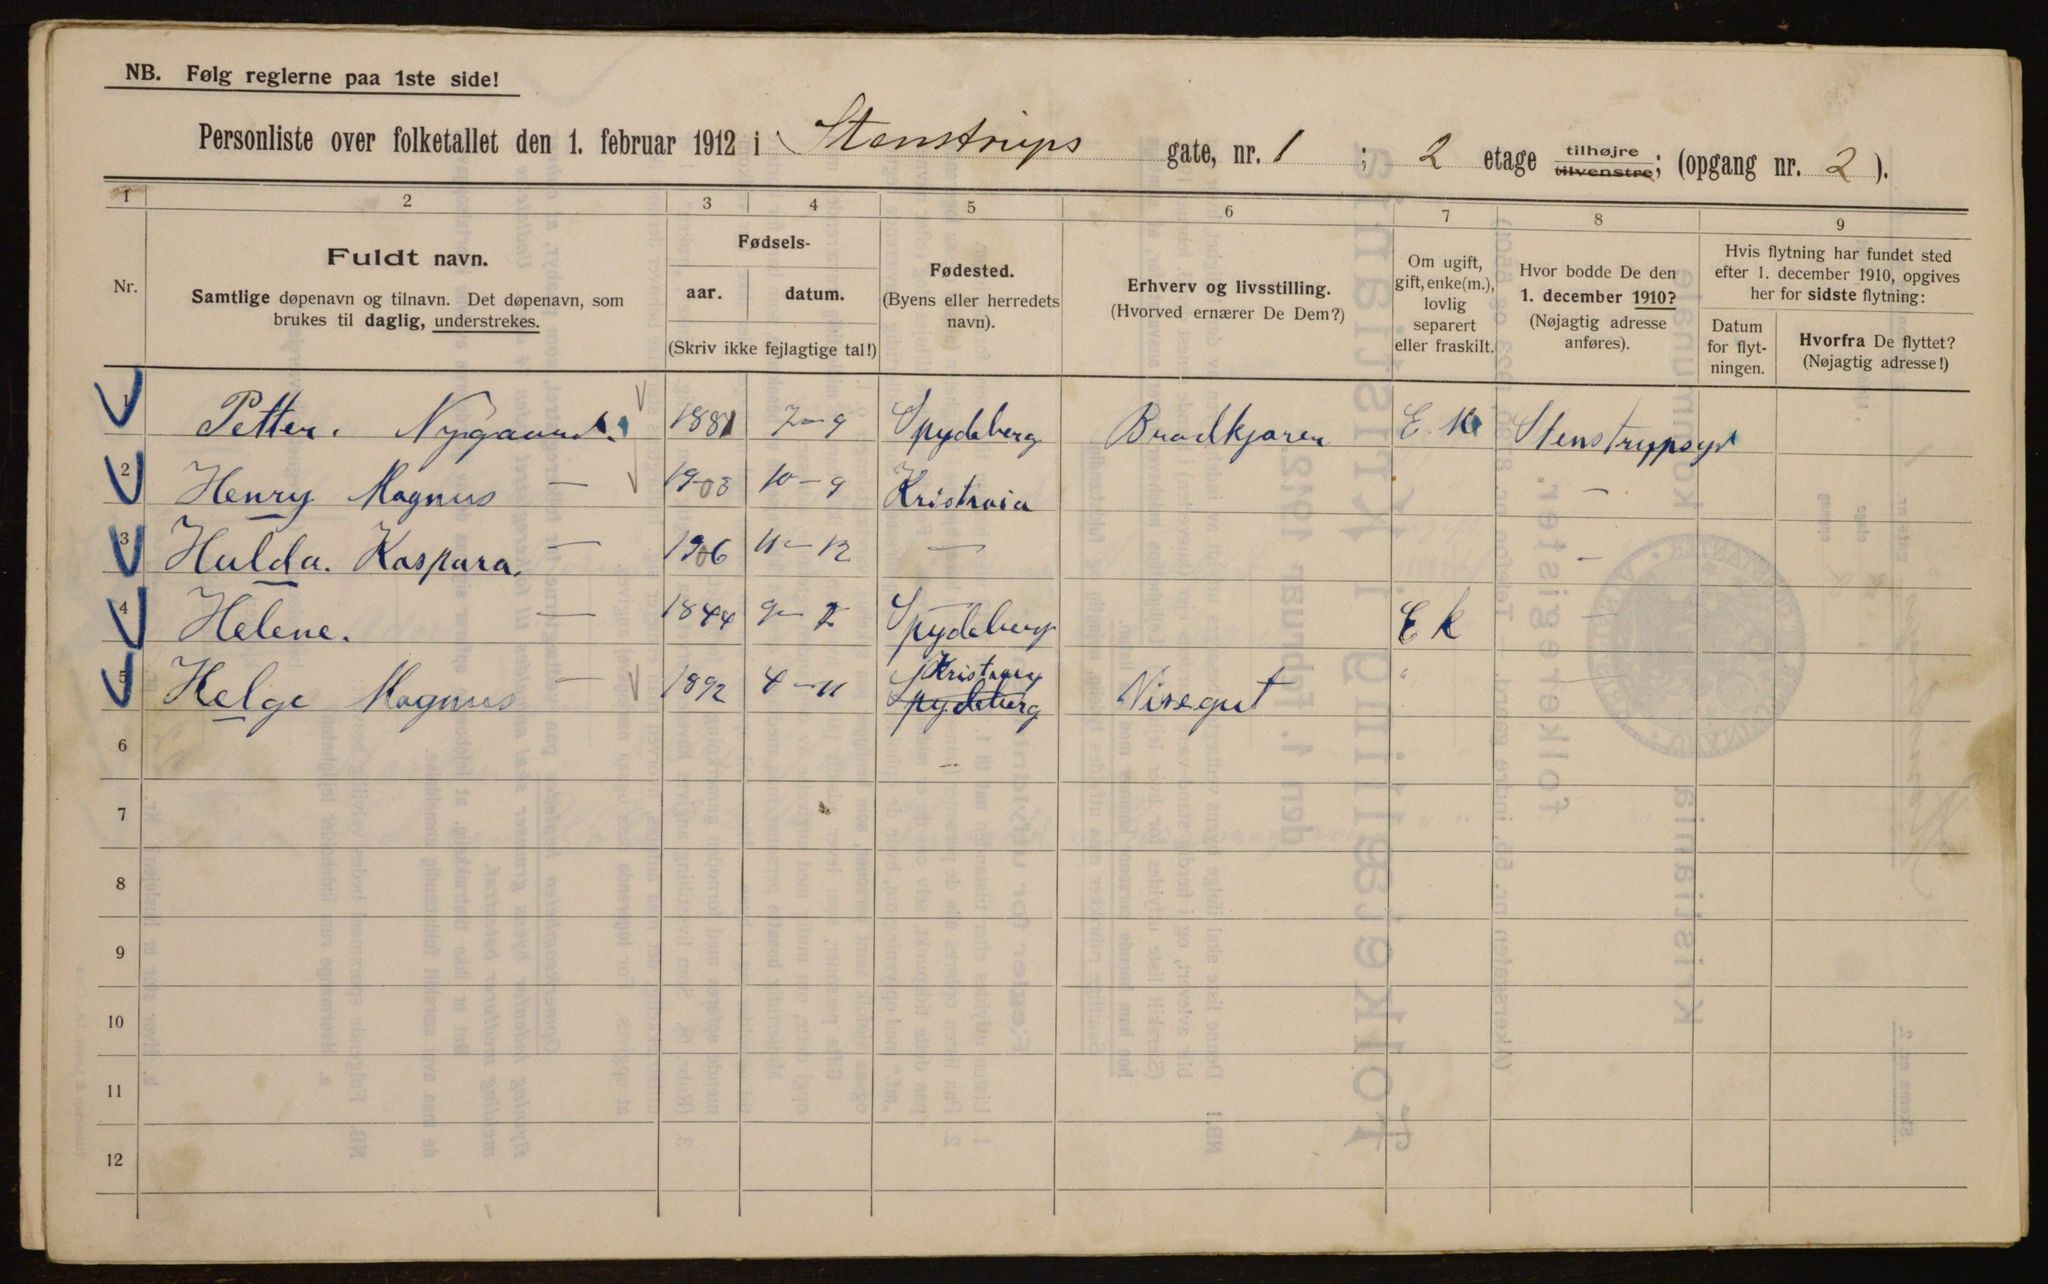 NB. Følg reglerne paa 1ste side!
Personliste over folketallet den 1. februar 1912 i Stenstrups gate, nr. 1 ; 2 etage tilhøjre tilvenstre; (opgang nr. 2 ).
1 2 3 4 5 6 7 8 9
Nr.
Fuldt navn.
Samtlige døpenavn og tilnavn. Det døpenavn, som
brukes til daglig, understrekes.
Fødsels-
aar. datum.
(Skriv ikke fejlagtige tal!)
Fødested.
(Byens eller herredets
navn).
Erhverv og livsstilling.
(Hvorved ernærer De Dem?)
Om ugift,
gift, enke(m.),
lovlig
separert
eller fraskilt.
Hvor bodde De den
1. december 1910?
(Nøjagtig adresse
anføres).
Hvis flytning har fundet sted
efter 1. december 1910, opgives
her for sidste flytning:
Datum
for flyt-
ningen.
Hvorfra De flyttet?
(Nøjagtig adresse!)
1 Petter. Nygaard. 1881 7-9 Spydeberg Brodkjører E. K Stenstrupsgt
2 Henry Magnus — 1903 10-9 Kristania —
3 Hulda. Kaspara. — 1906 11-12 — —
4 Helene. — 1844 9-2 Spydeberg E k —
5 Helge Magnus — 1892 4-11 Spydeberg Visegut " —
6
7
8
9
10
11
12